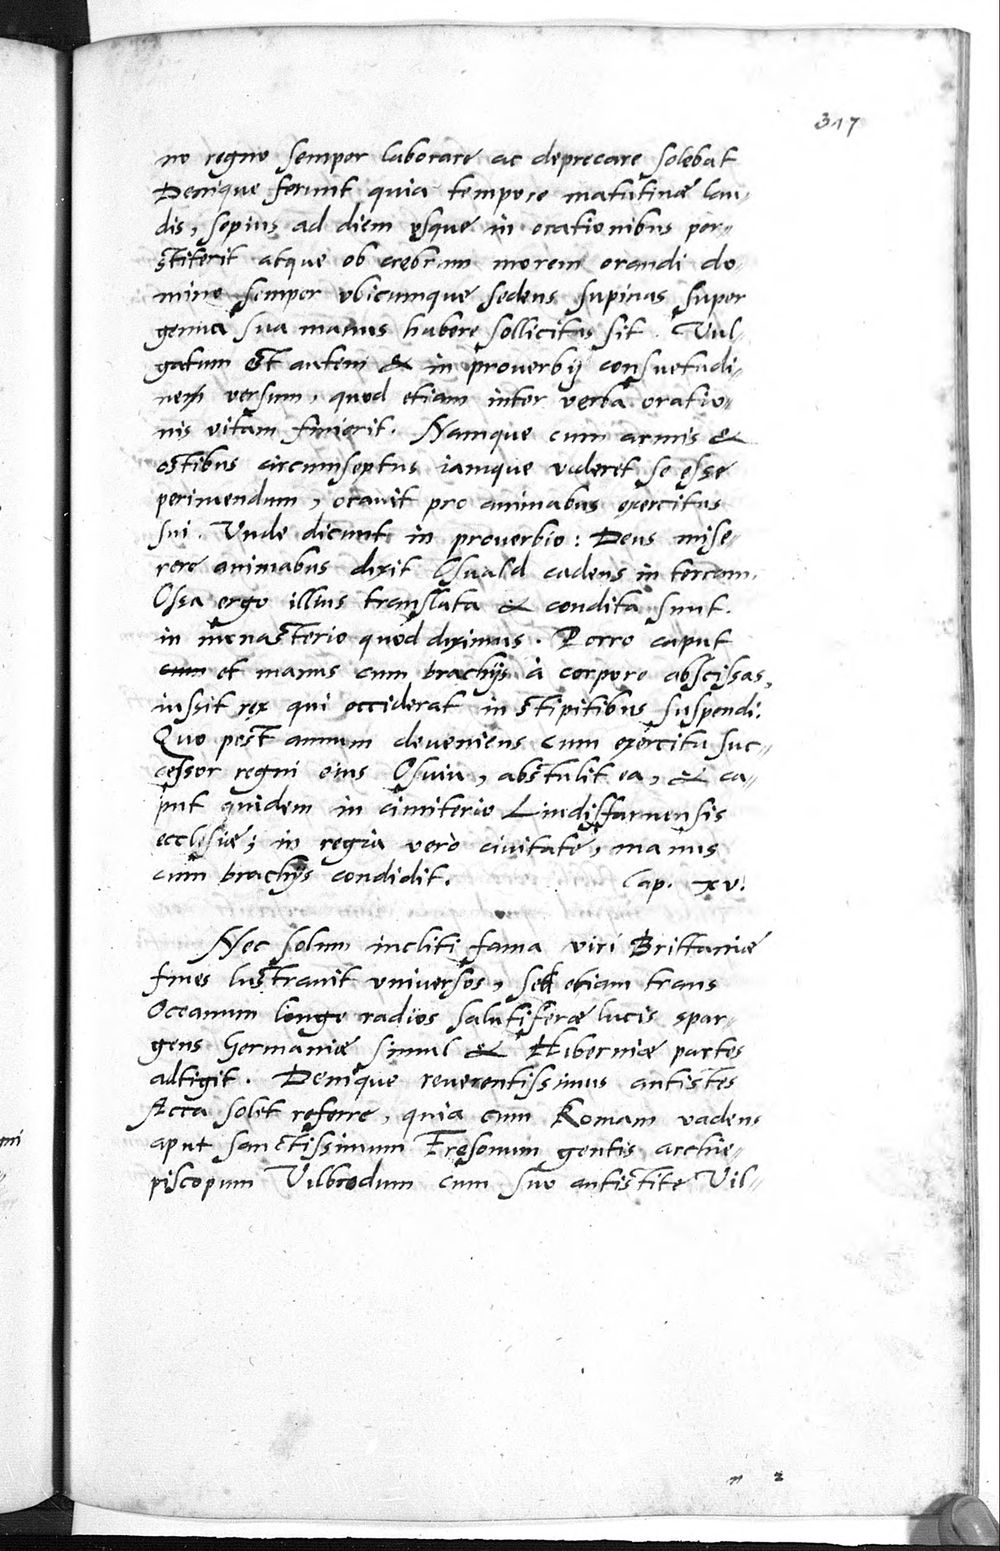 317
no regno semper laborare ac deprecare solebat
Denique ferunt quia tempore matutinæ lau-
dis, sepius ad diem vsque in orationibus per-
stiterit atque ob crebrum morem orandi do-
mino semper vbicumque sedens supinas super
genua sua manus habere sollicitus sit. Vul-
gatum est autem & in proverbij consuetudi-
nem versum, quod etiam inter verba oratio-
nis vitam finierit. Namque cum armis &
ostibus circumseptus iamque videret se esse
perimendum, oravit pro animabus exercitus
sui. Vnde dicunt in proverbio: Deus mise-
rere animabus dixit Osuald cadens in terram.
Ossa ergo illius translata & condita sunt.
in monasterio quod diximus. Porro caput
cum et manus cum brachijs à corpore abscissas,
iussit rex qui occiderat in stipitibus suspendi.
Quo post annum deveniens cum exercitu suc-
cessor regni eius Osuiu, abstulit ea, & ca-
put quidem in cimiterio Lindisfarnensis
ecclesiæ; in regia verò civitate, manus
cum brachijs condidit. Cap. xv.
Nec solum incliti fama viri Brittaniæ
fines lustravit vniversos, sed etiam trans
Oceanum longe radios salutiferæ lucis spar-
gens Germaniæ simul & Hiberniæ partes
attigit. Denique reverentissimus antistes
Acca solet referre, quia cum Romam vadens
aput sanctissimum Fresonum gentis archie-
piscopum Vilbrodum cum suo antistite Vil-
n 2